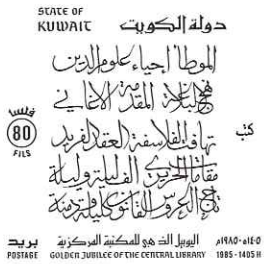 STATE OF
KUWAIT
دولة الكويت
الموطأ احياء علوم الدين
نهج البلاغة المقدمة الاغاني
تهافت الفلاسفة العقد الفريد
مقامات الحريري الف ليلة وليلة
تاج العروس القانون كليلة ودمنة
فلسا
80
FILS
كتب
بريد
POSTAGE
اليوبيل الذهبي للمكتبة المركزية
GOLDEN JUBILEE OF THE CENTRAL LIBRARY
١٤٠٥-١٩٨٥م
1985-1405H